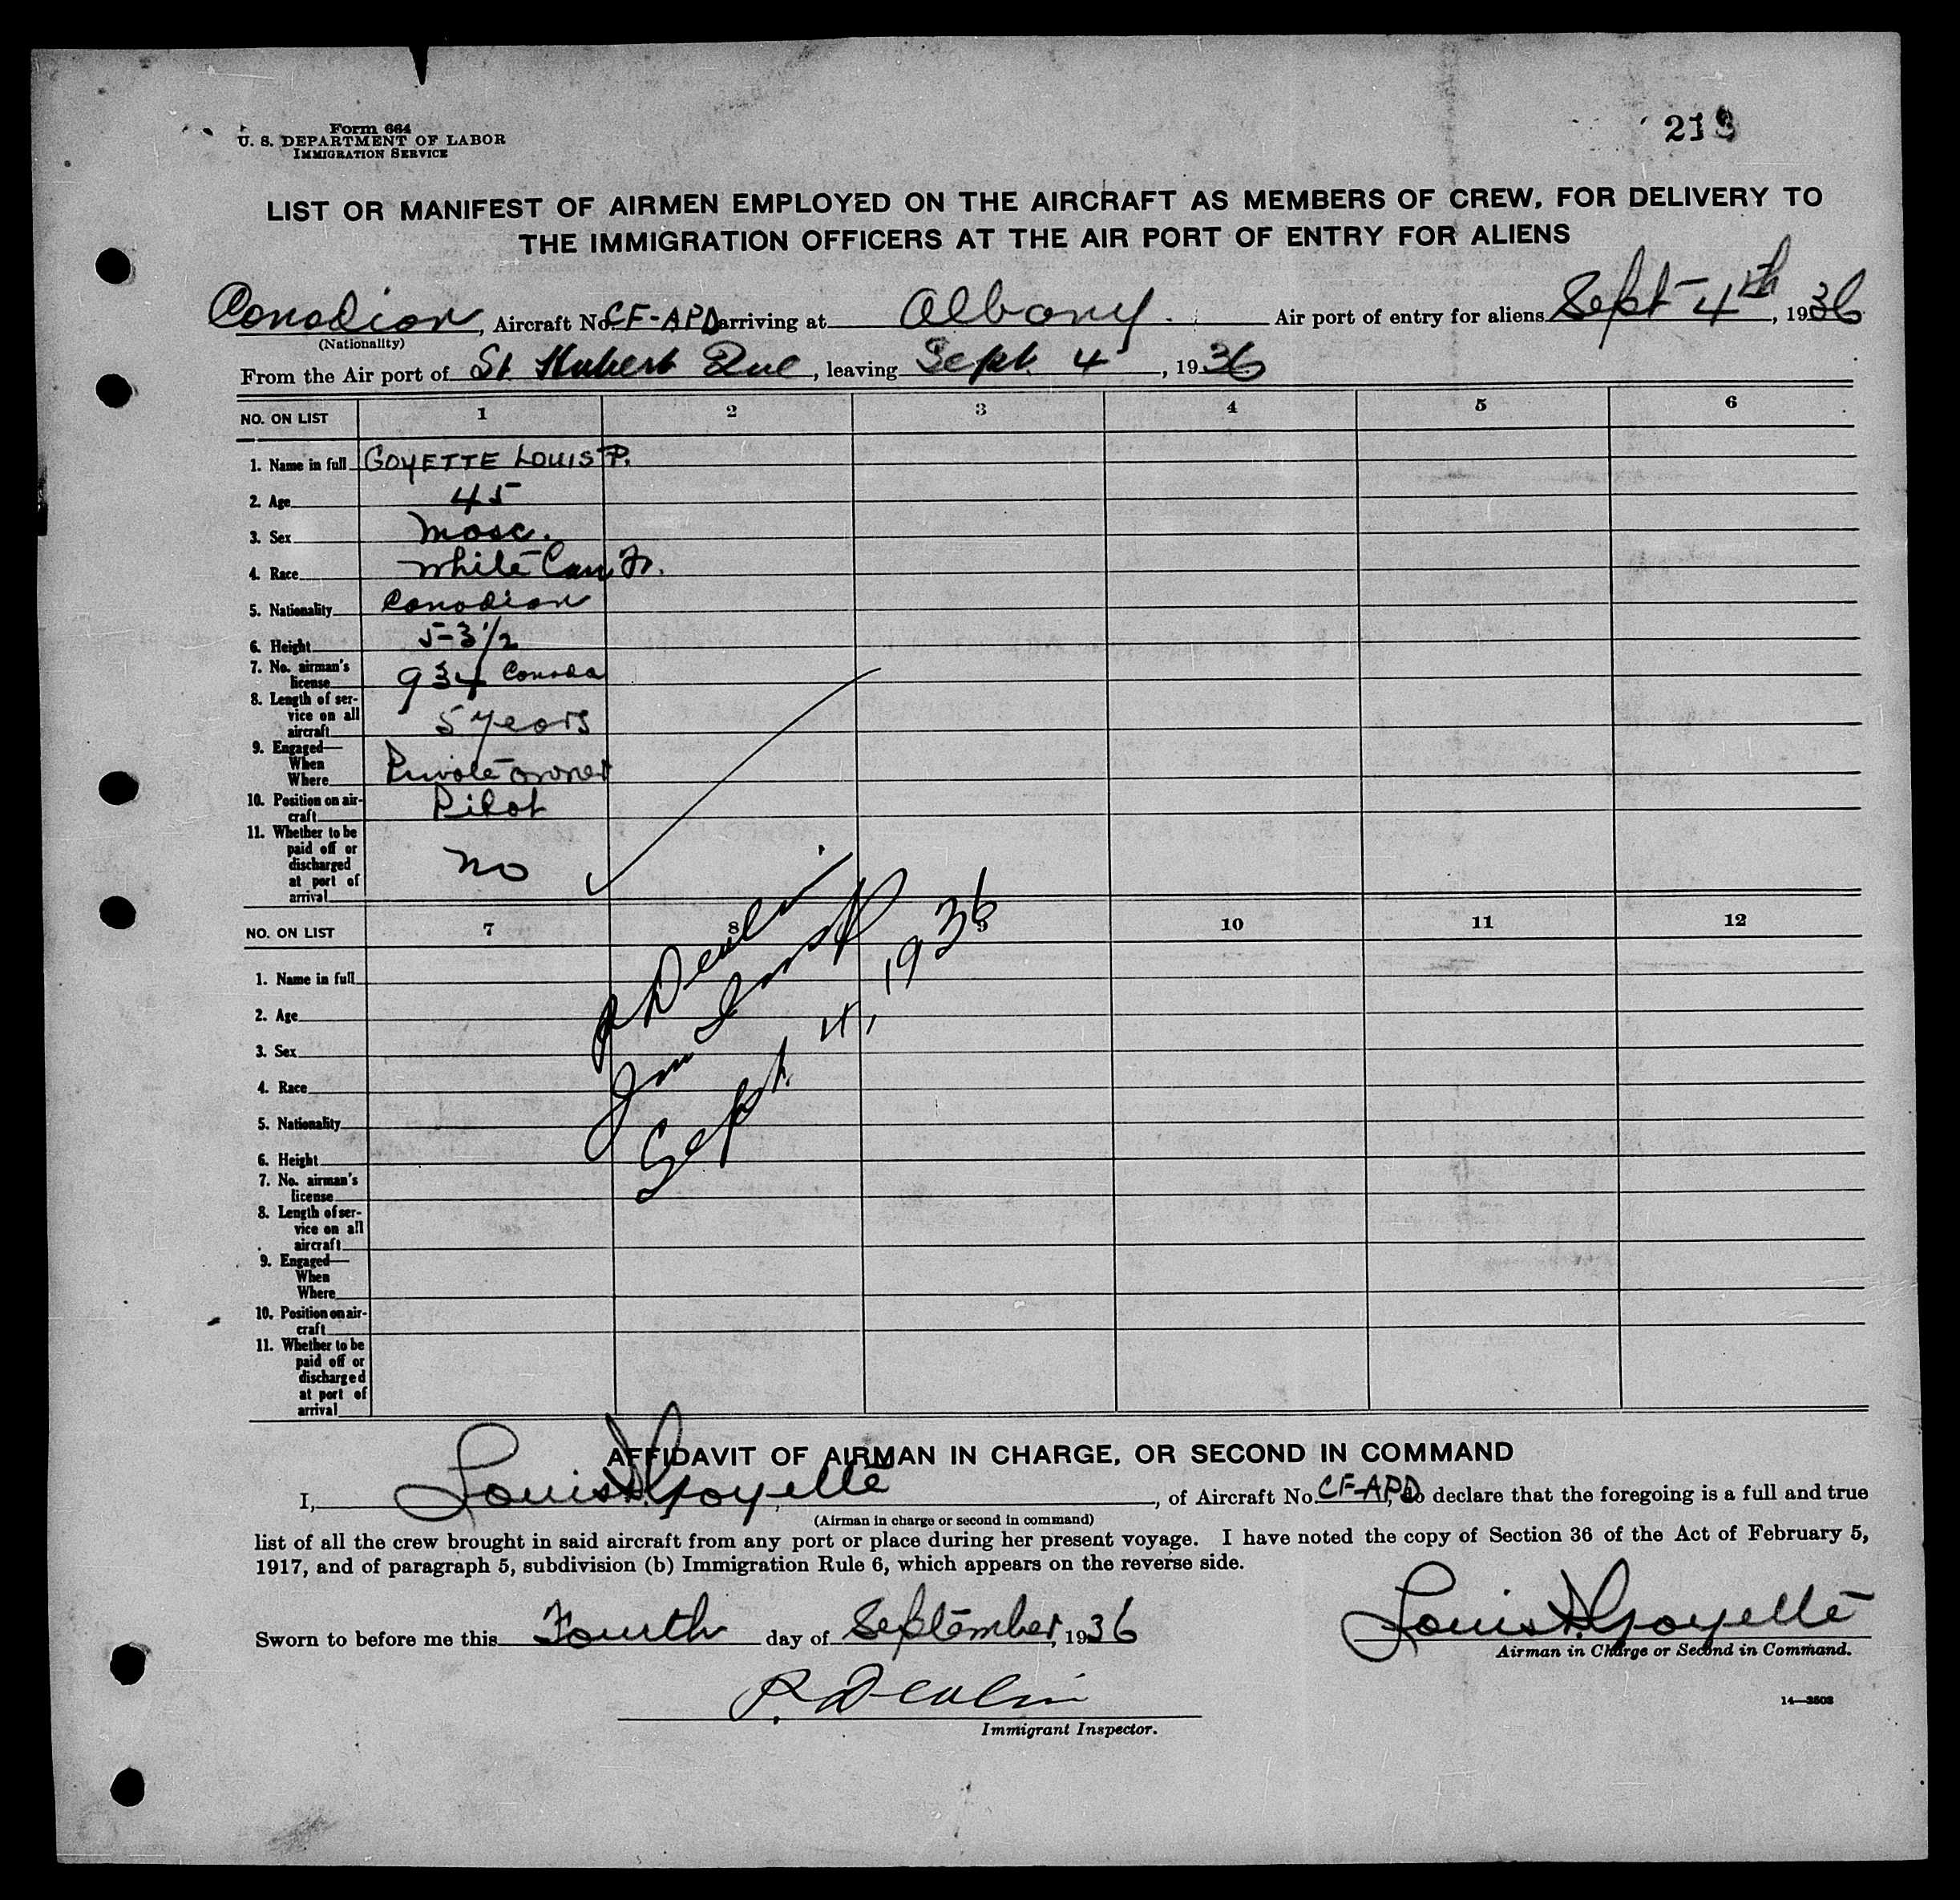 Form 664
U. S. DEPARTMENT OF LABOR
IMMIGRATION SERVICE
LIST OR MANIFEST OF AIRMEN EMPLOYED ON THE AIRCRAFT AS MEMBERS OF CREW, FOR DELIVERY TO
THE IMMIGRATION OFFICERS AT THE AIR PORT OF ENTRY FOR ALIENS
Canadian, Aircraft No. CF-APD arriving at Albany. Air port of entry for aliens Sept 4th, 1936
(Nationality)
From the Air port of St. Hubert Que, leaving Sept. 4, 1936
NO. ON LIST 1 2 3 4 5 6
1. Name in full GOYETTE LOUIS P.
2. Age 45
3. Sex Masc.
4. Race White Can Fr.
5. Nationality Canadian
6. Height 5-3 1/2
7. No. airman's
license 934 Canada
8. Length of ser-
vice on all
aircraft 5 years
9. Engaged—
When
Where Private owner
10. Position on air-
craft Pilot
11. Whether to be
paid off or
discharged
at port of
arrival No
NO. ON LIST 7 8 9 10 11 12
1. Name in full
2. Age
3. Sex
4. Race
5. Nationality
6. Height
7. No. airman's
license
8. Length of ser-
vice on all
aircraft
9. Engaged—
When
Where
10. Position on air-
craft
11. Whether to be
paid off or
discharged
at port of
arrival
P Devlin
Imm Insp
Sept. 4, 1936
AFFIDAVIT OF AIRMAN IN CHARGE, OR SECOND IN COMMAND
I, Louis P. Goyette, of Aircraft No. CF-APD, do declare that the foregoing is a full and true
(Airman in charge or second in command)
list of all the crew brought in said aircraft from any port or place during her present voyage. I have noted the copy of Section 36 of the Act of February 5,
1917, and of paragraph 5, subdivision (b) Immigration Rule 6, which appears on the reverse side.
Louis P. Goyette
Sworn to before me this Fourth day of September, 1936
Airman in Charge or Second in Command.
P. Devlin
Immigrant Inspector.